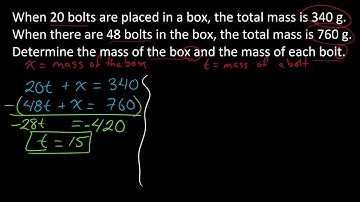 When 20 bolts are placed in a box, the total mass is 340 g.
When there are 48 bolts in the box, the total mass is 760 g.
Determine the mass of the box and the mass of each bolt.
x = mass of the box t = mass of a bolt
20t + x = 340
-(48t + x = 760)
-28t = -420
t = 15